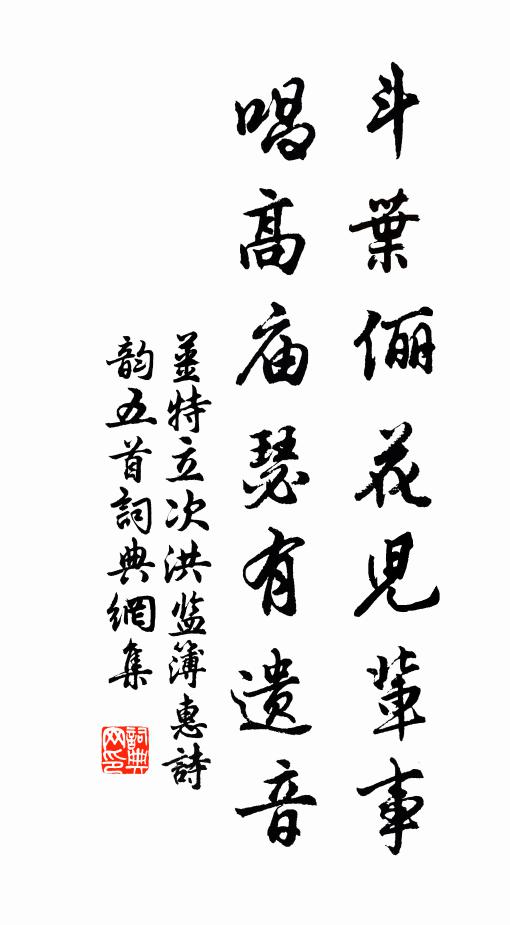 斗葉儷花兒輩事
唱高庙瑟有遺音
薑特立次洪监簿惠詩
韵五首詞典網集
詞典網印